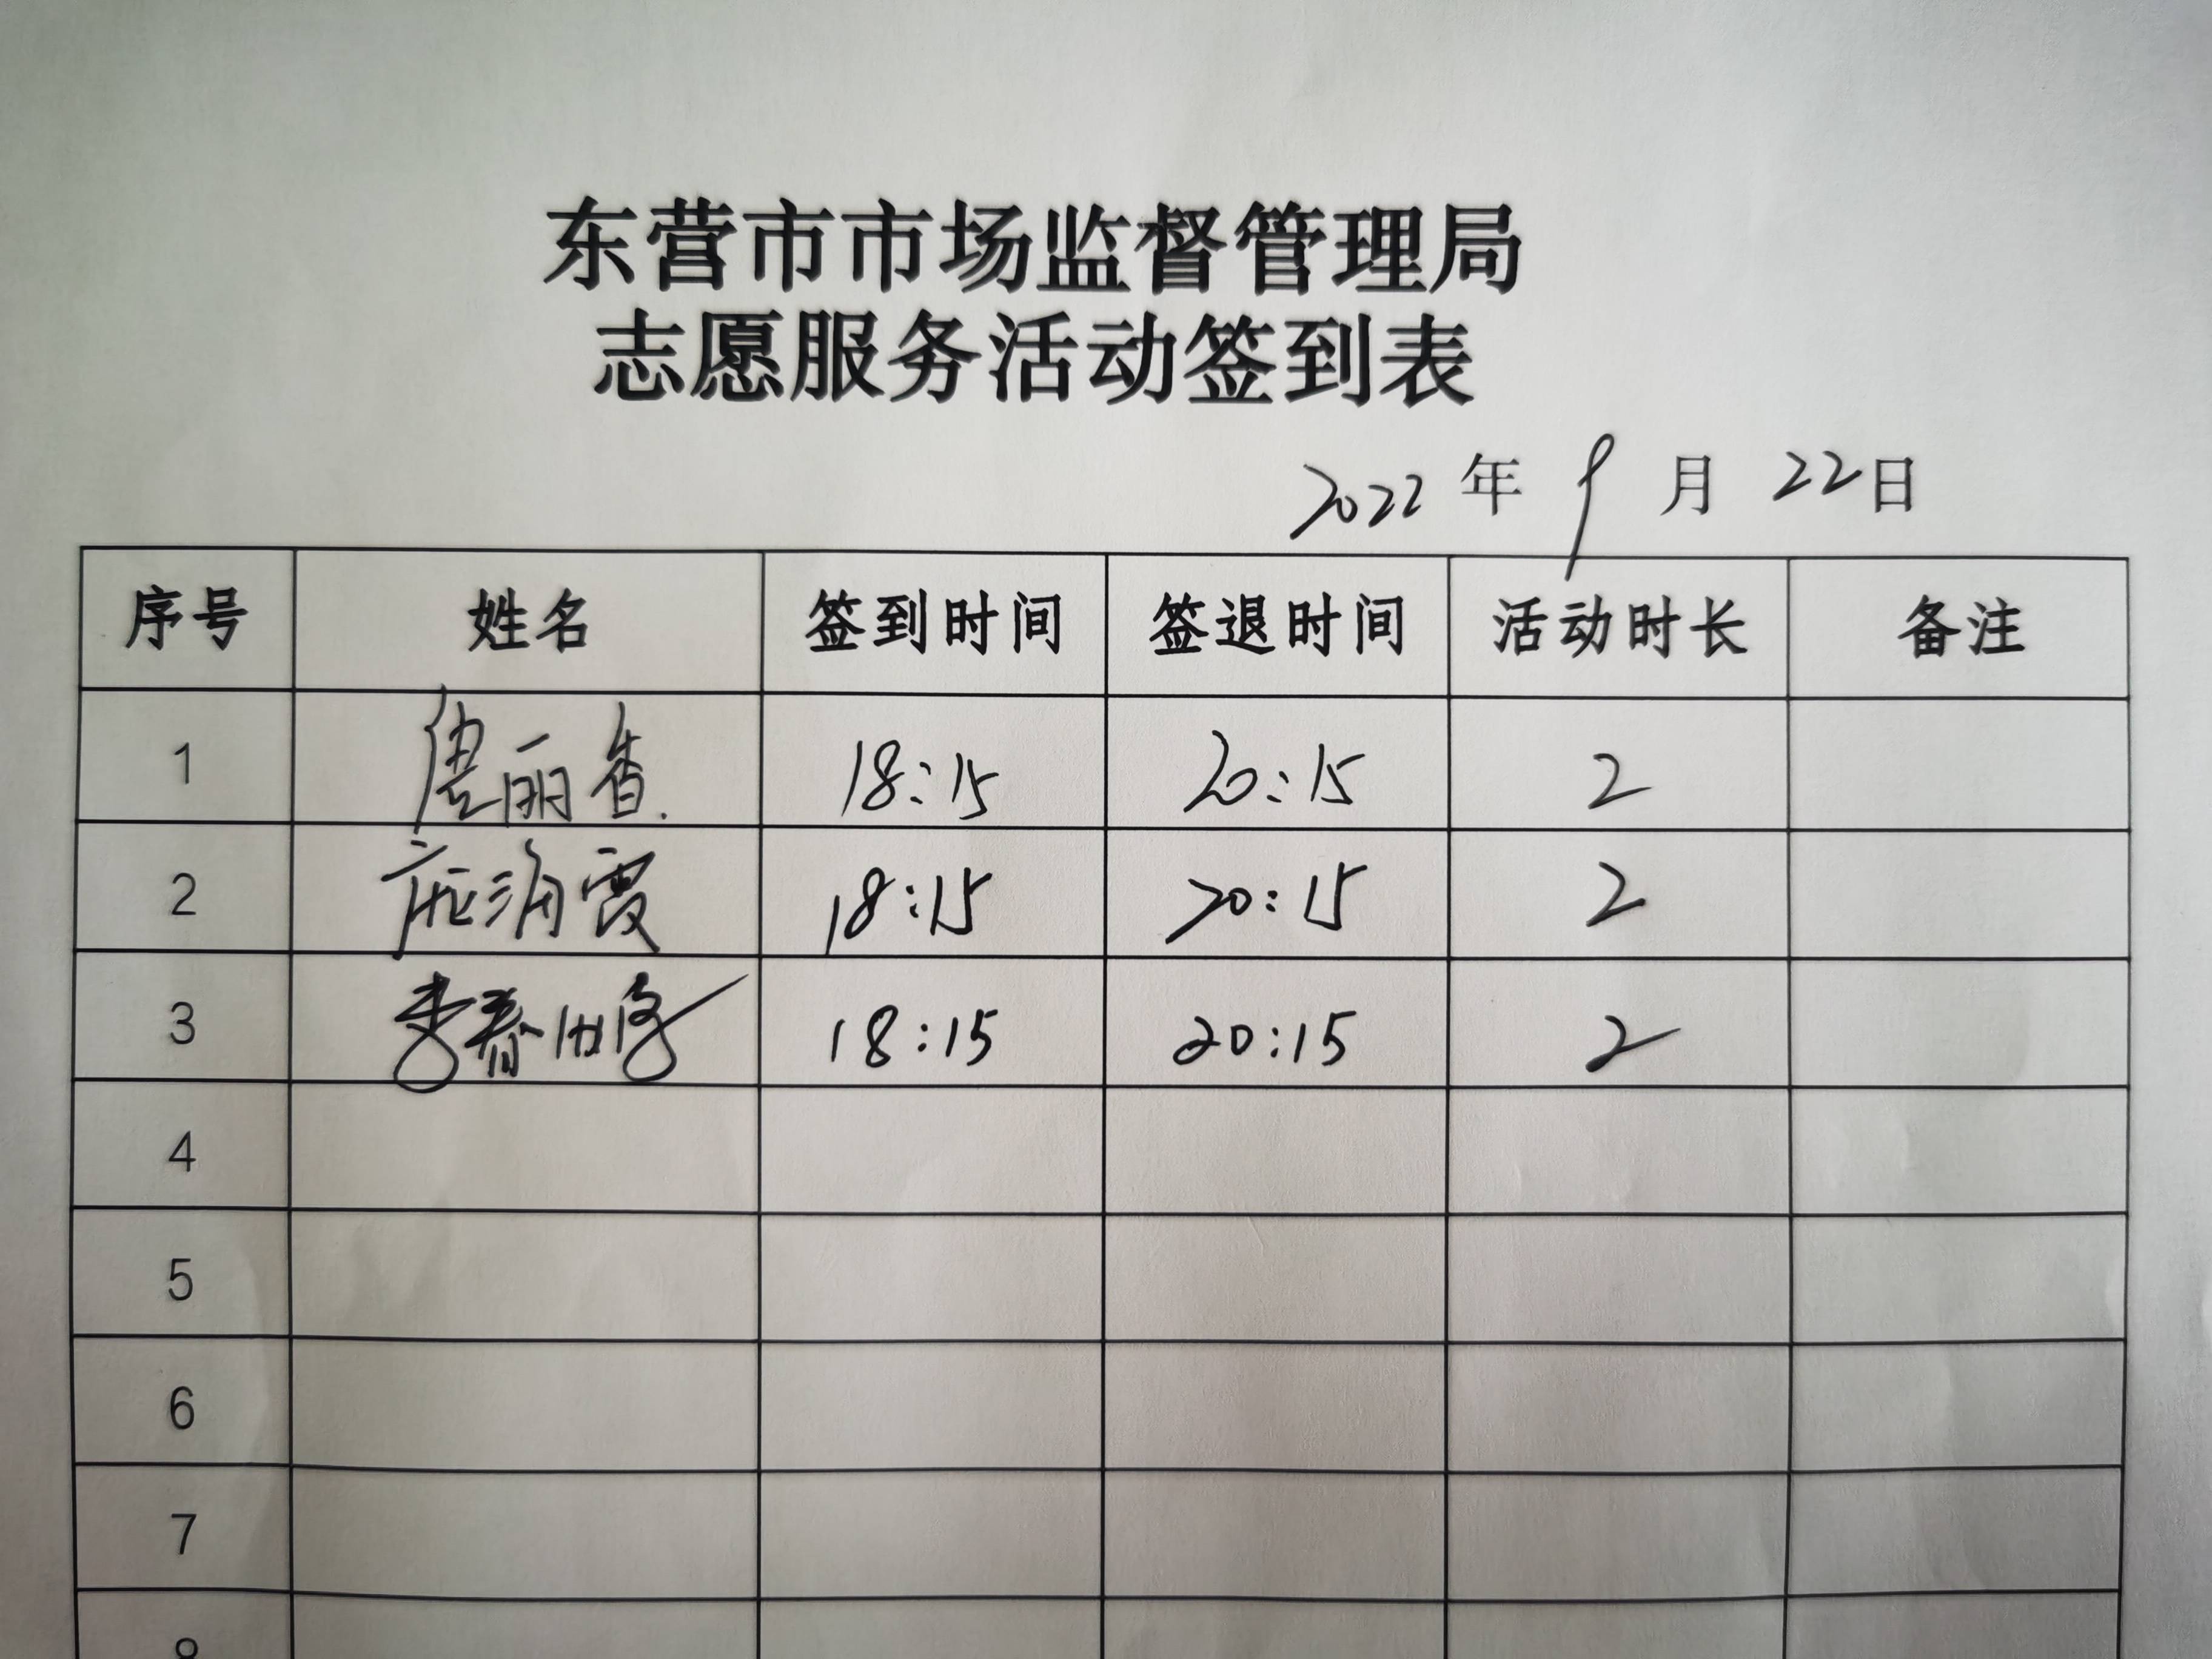 东营市市场监督管理局
志愿服务活动签到表
2022年9月22日
序号 姓名 签到时间 签退时间 活动时长 备注
1 唐丽香 18:15 20:15 2
2 庞海霞 18:15 20:15 2
3 李春 18:15 20:15 2
4
5
6
7
8